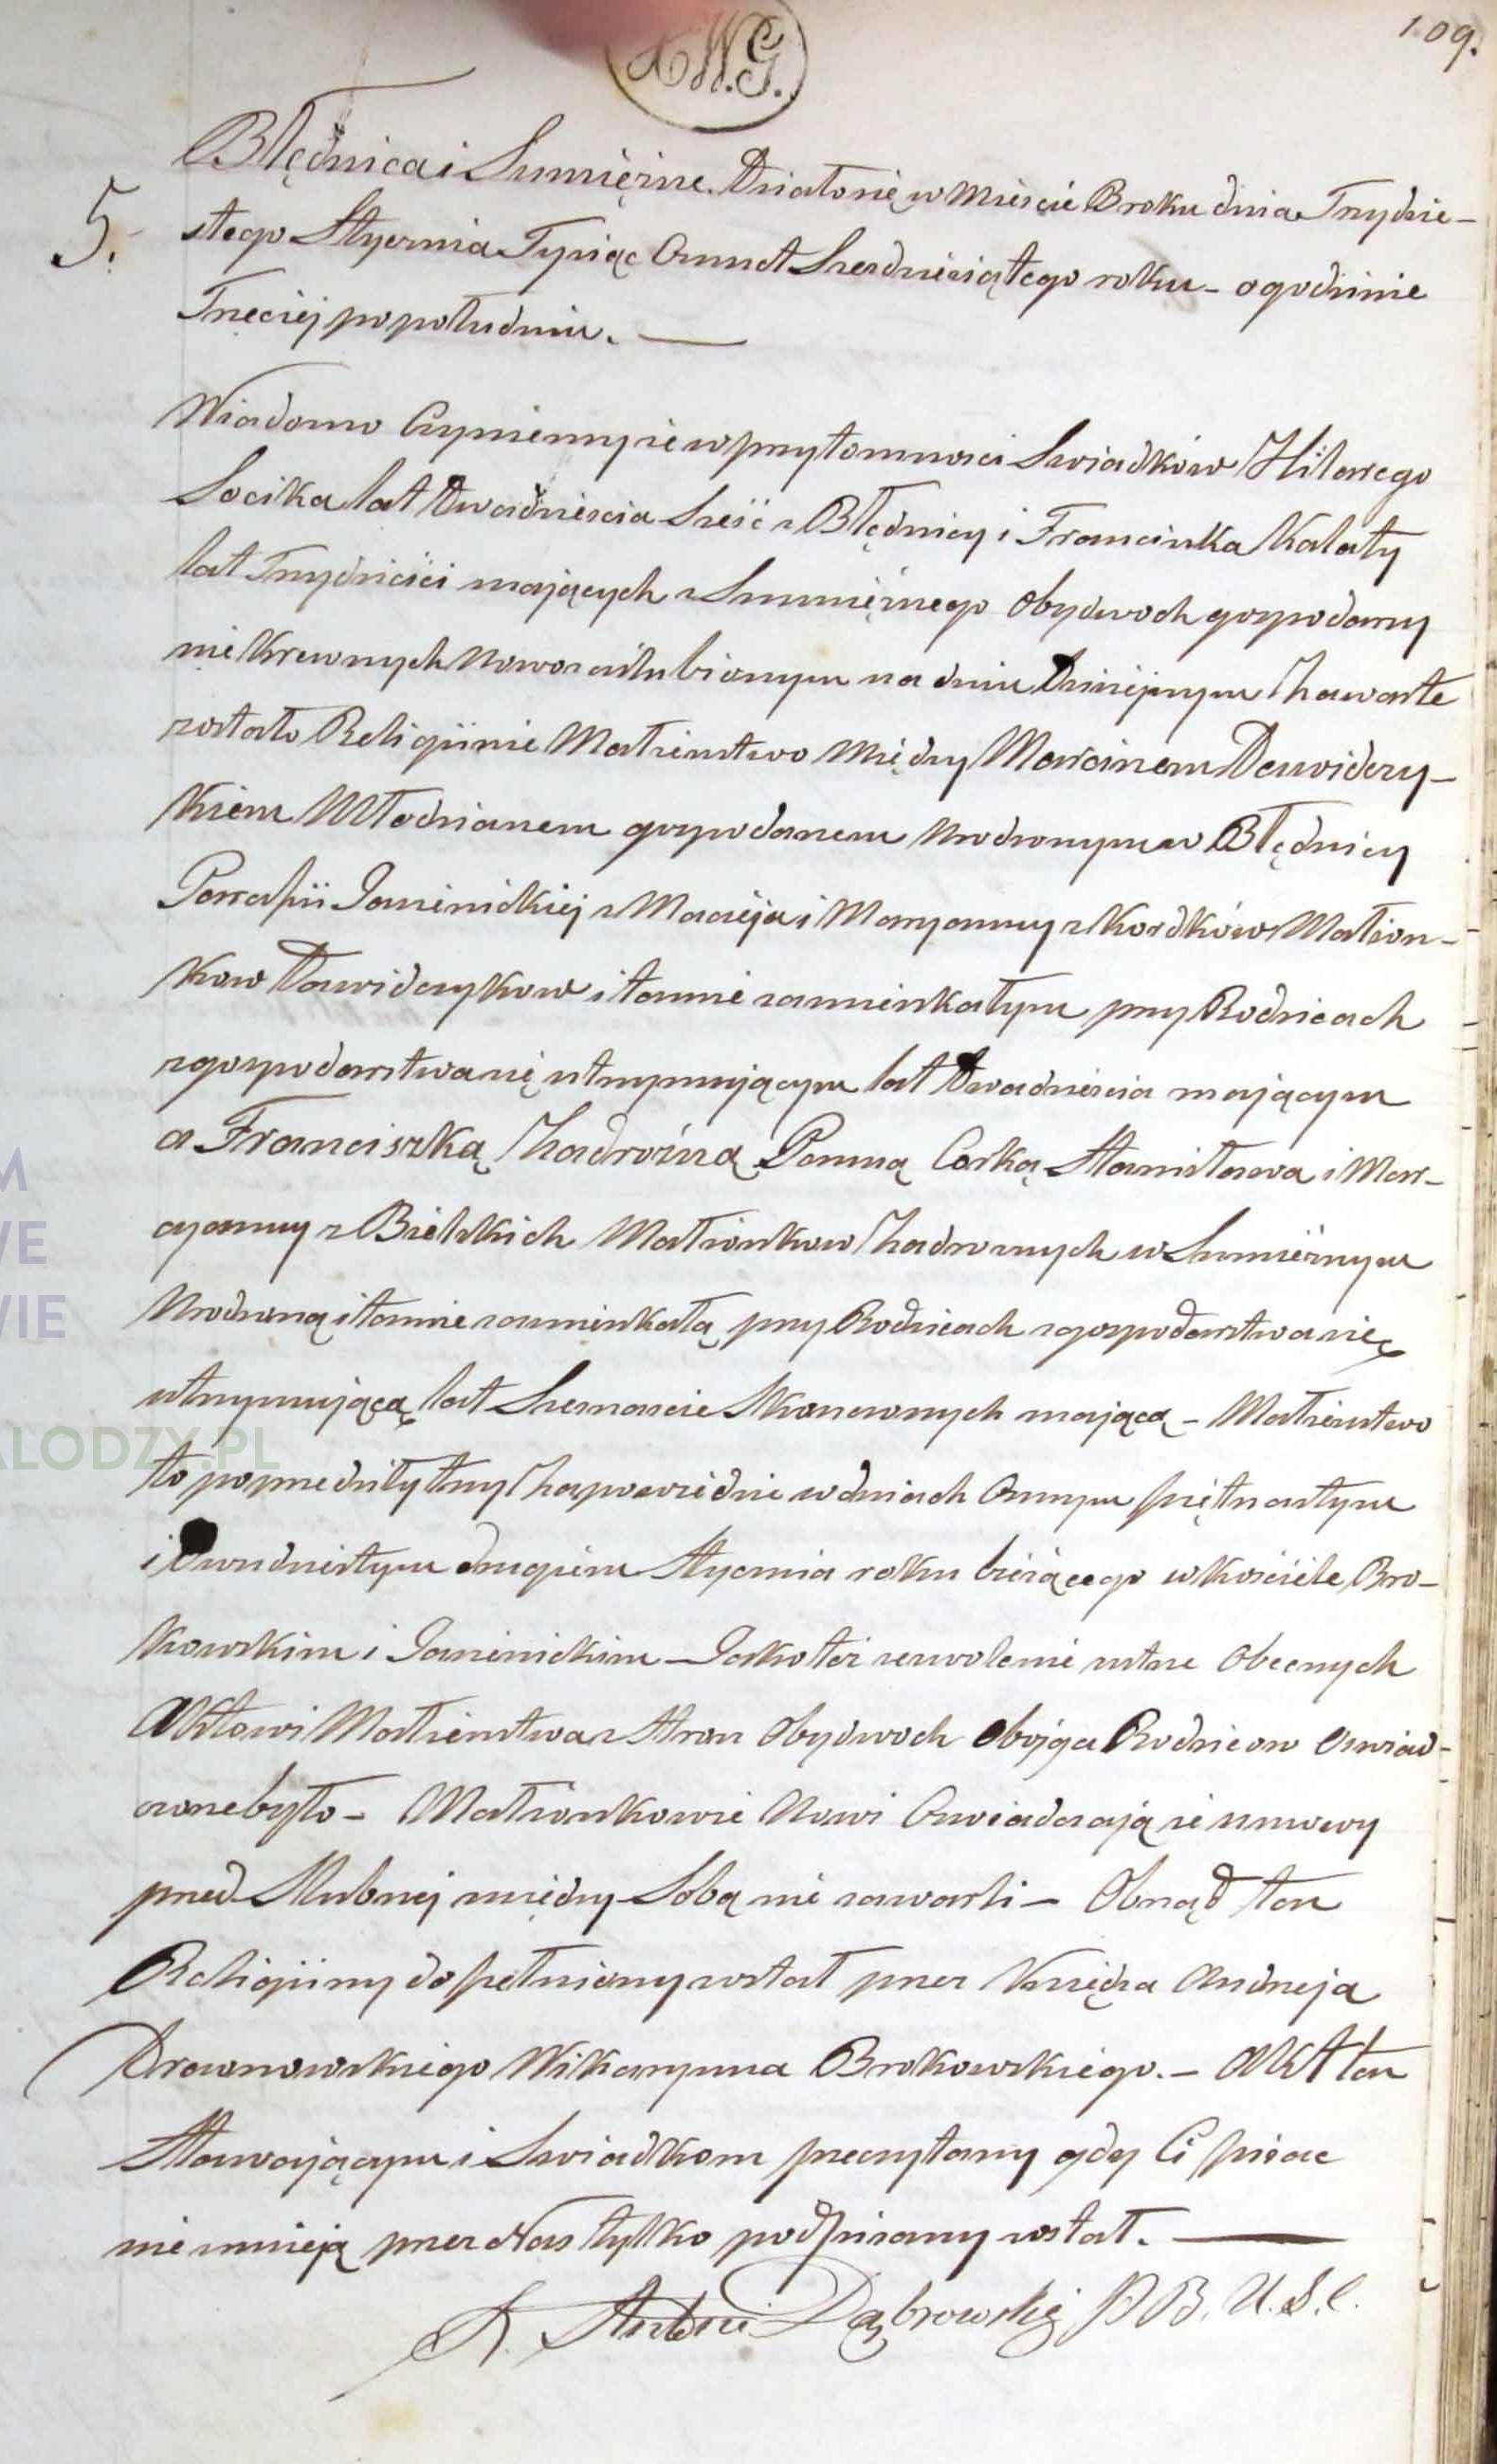 109.
X W.G.
5.
Błędnica i Sumiężne. Działo się w Mieście Broku dnia Trzydzie-
stego Stycznia Tysiąc Osmset Szesdziesiątego roku – o godzinie
Trzeciej popołudniu. —
Wiadomo Czyniemy że w przytomnosci Swiadków Hilarego
Socika lat Dwadziescia Sześć z Błędnicy i Franciszka Kalaty
lat Trzydzieści mających z Sumiężnego Obydwoch gospodarzy
nie krewnych Nowozaslubionym na dniu Dzisiejszym Zawarte
zostało Religijnie Małżenstwo Między Marcinem Dawidczy-
kiem Młodzianem gospodarzem Urodzonym w Błędnicy
Parafii Jasienickiej z Macieja i Maryanny z Kordków Małżon-
kow Dawidczykow i tamże zamieszkałym przy Rodzicach
z gospodarstwa się utrzymującym lat Dwadziescia mającym
a Franciszką Zadrożną Panną Corką Stanisława i Mar-
cyanny z Bielskich Małżonkow Zadroznych w Sumiężnym
Urodzoną i tamże zamieszkałą przy Rodzicach z gospodarstwa się
utrzymującą lat Szesnascie Skonczonych mającą – Małżenstwo
to poprzedziły trzy Zapowiedzie w dniach Osmym piętnastym
i Dwudziestym drugim Stycznia roku bieżącego w kościele Bro-
kowskim i Jasienickim – Jako też zezwolenie ustne Obecnych
Aktowi Małżenstwa z Stron Obydwoch obojga Rodzicow Oswiad-
czone było – Małżonkowie Nowi Oswiadczają że umowy
przed Slubnej między Sobą nie zawarli – Obrząd ten
Religijny dopełniony zostal przez Xsiędza Andrzeja
Drewnowskiego Wikaryusza Brokowskiego. – Akt ten
Stawającym i Swiadkom przeczytany gdy Ci pisac
nie umieją przez Nas tylko podpisany został. —
X. Antoni Dąbrowski P.B. U.S.C.
M
WE
WIE
ALODZY.PL